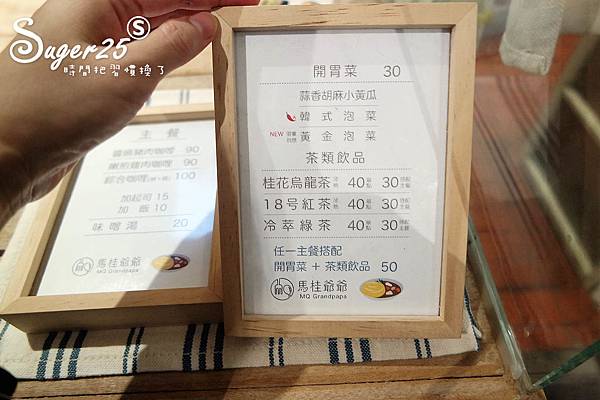 Suger25 Ⓢ
時間把習慣換了
主餐
90
90
綜合咖哩 100
加起司 15
加飯 10
味噌湯 20
馬桂爺爺
MQ Grandpapa
開胃菜 30
蒜香胡麻小黃瓜
韓式泡菜
NEW 黃金泡菜
茶類飲品
桂花烏龍茶 40 單點 30 搭配主餐
18号紅茶 40 單點 30 搭配主餐
冷萃綠茶 40 單點 30 搭配主餐
任一主餐搭配
開胃菜 + 茶類飲品 50
馬桂爺爺
MQ Grandpapa